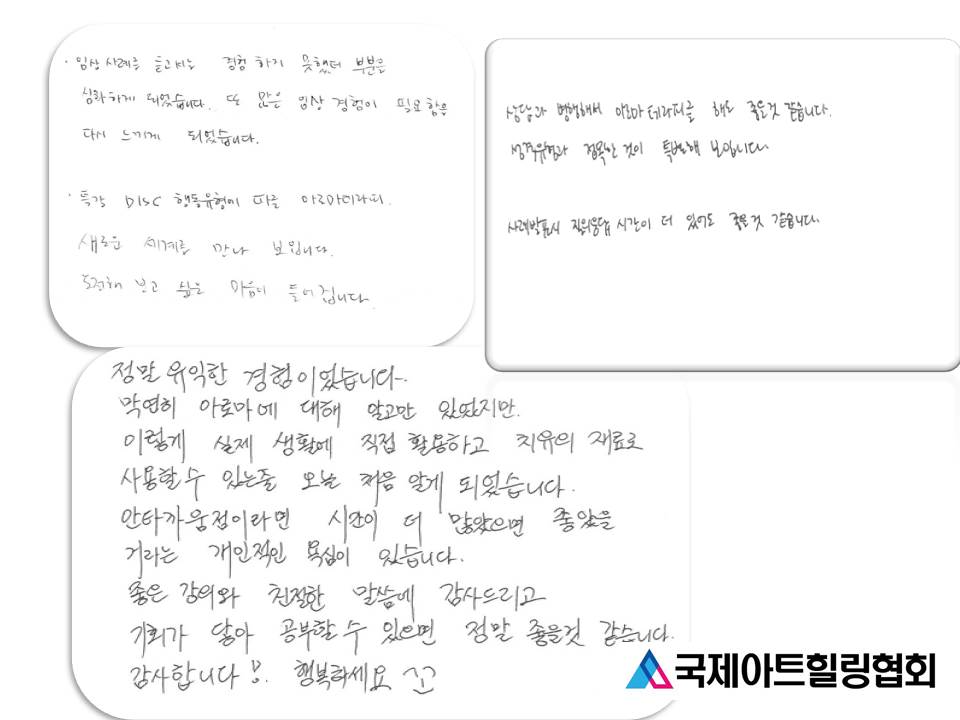 · 임상 사례를 듣고서는 경험 하지 못했던 부분을
심화하게 되었습니다. 또 많은 임상 경험이 필요함을
다시 느끼게 되었습니다.
· 특강 DISC 행동유형에 따른 아로마테라피.
새로운 세계를 만나 보입니다.
도전해 보고 싶은 마음이 들어집니다.
상담과 병행해서 아로마테라피를 해도 좋을것 같습니다.
성격유형과 접목한 것이 특별해 보입니다.
사례발표시 질의응답 시간이 더 있어도 좋을것 같습니다.
정말 유익한 경험이었습니다.
막연히 아로마에 대해 알고만 있었지만.
이렇게 실제 생활에 직접 활용하고 치유의 재료로
사용할 수 있는줄 오늘 처음 알게 되었습니다.
안타까움점이라면 시간이 더 많았으면 좋았을
거라는 개인적인 욕심이 있습니다.
좋은 강의와 친절한 말씀에 감사드리고
기회가 닿아 공부할 수 있으면 정말 좋을것 같습니다.
감사합니다!. 행복하세요
국제아트힐링협회